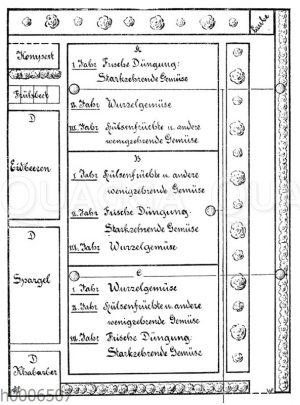 Laube
Kompost
Frühbeet
D
Erdbeeren
D
Spargel
D
Rhabarber
A
I. Jahr Frische Düngung:
Starkzehrende Gemüse
II. Jahr Wurzelgemüse
III. Jahr Hülsenfrüchte u. andere
wenigzehrende Gemüse
B
I. Jahr Hülsenfrüchte u. andere
wenigzehrende Gemüse
II. Jahr Frische Düngung
Starkzehrende Gemüse
III. Jahr Wurzelgemüse
C
I. Jahr Wurzelgemüse
II. Jahr Hülsenfrüchte u. andere
wenigzehrende Gemüse
III. Jahr Frische Düngung
Starkzehrende Gemüse
h0006507